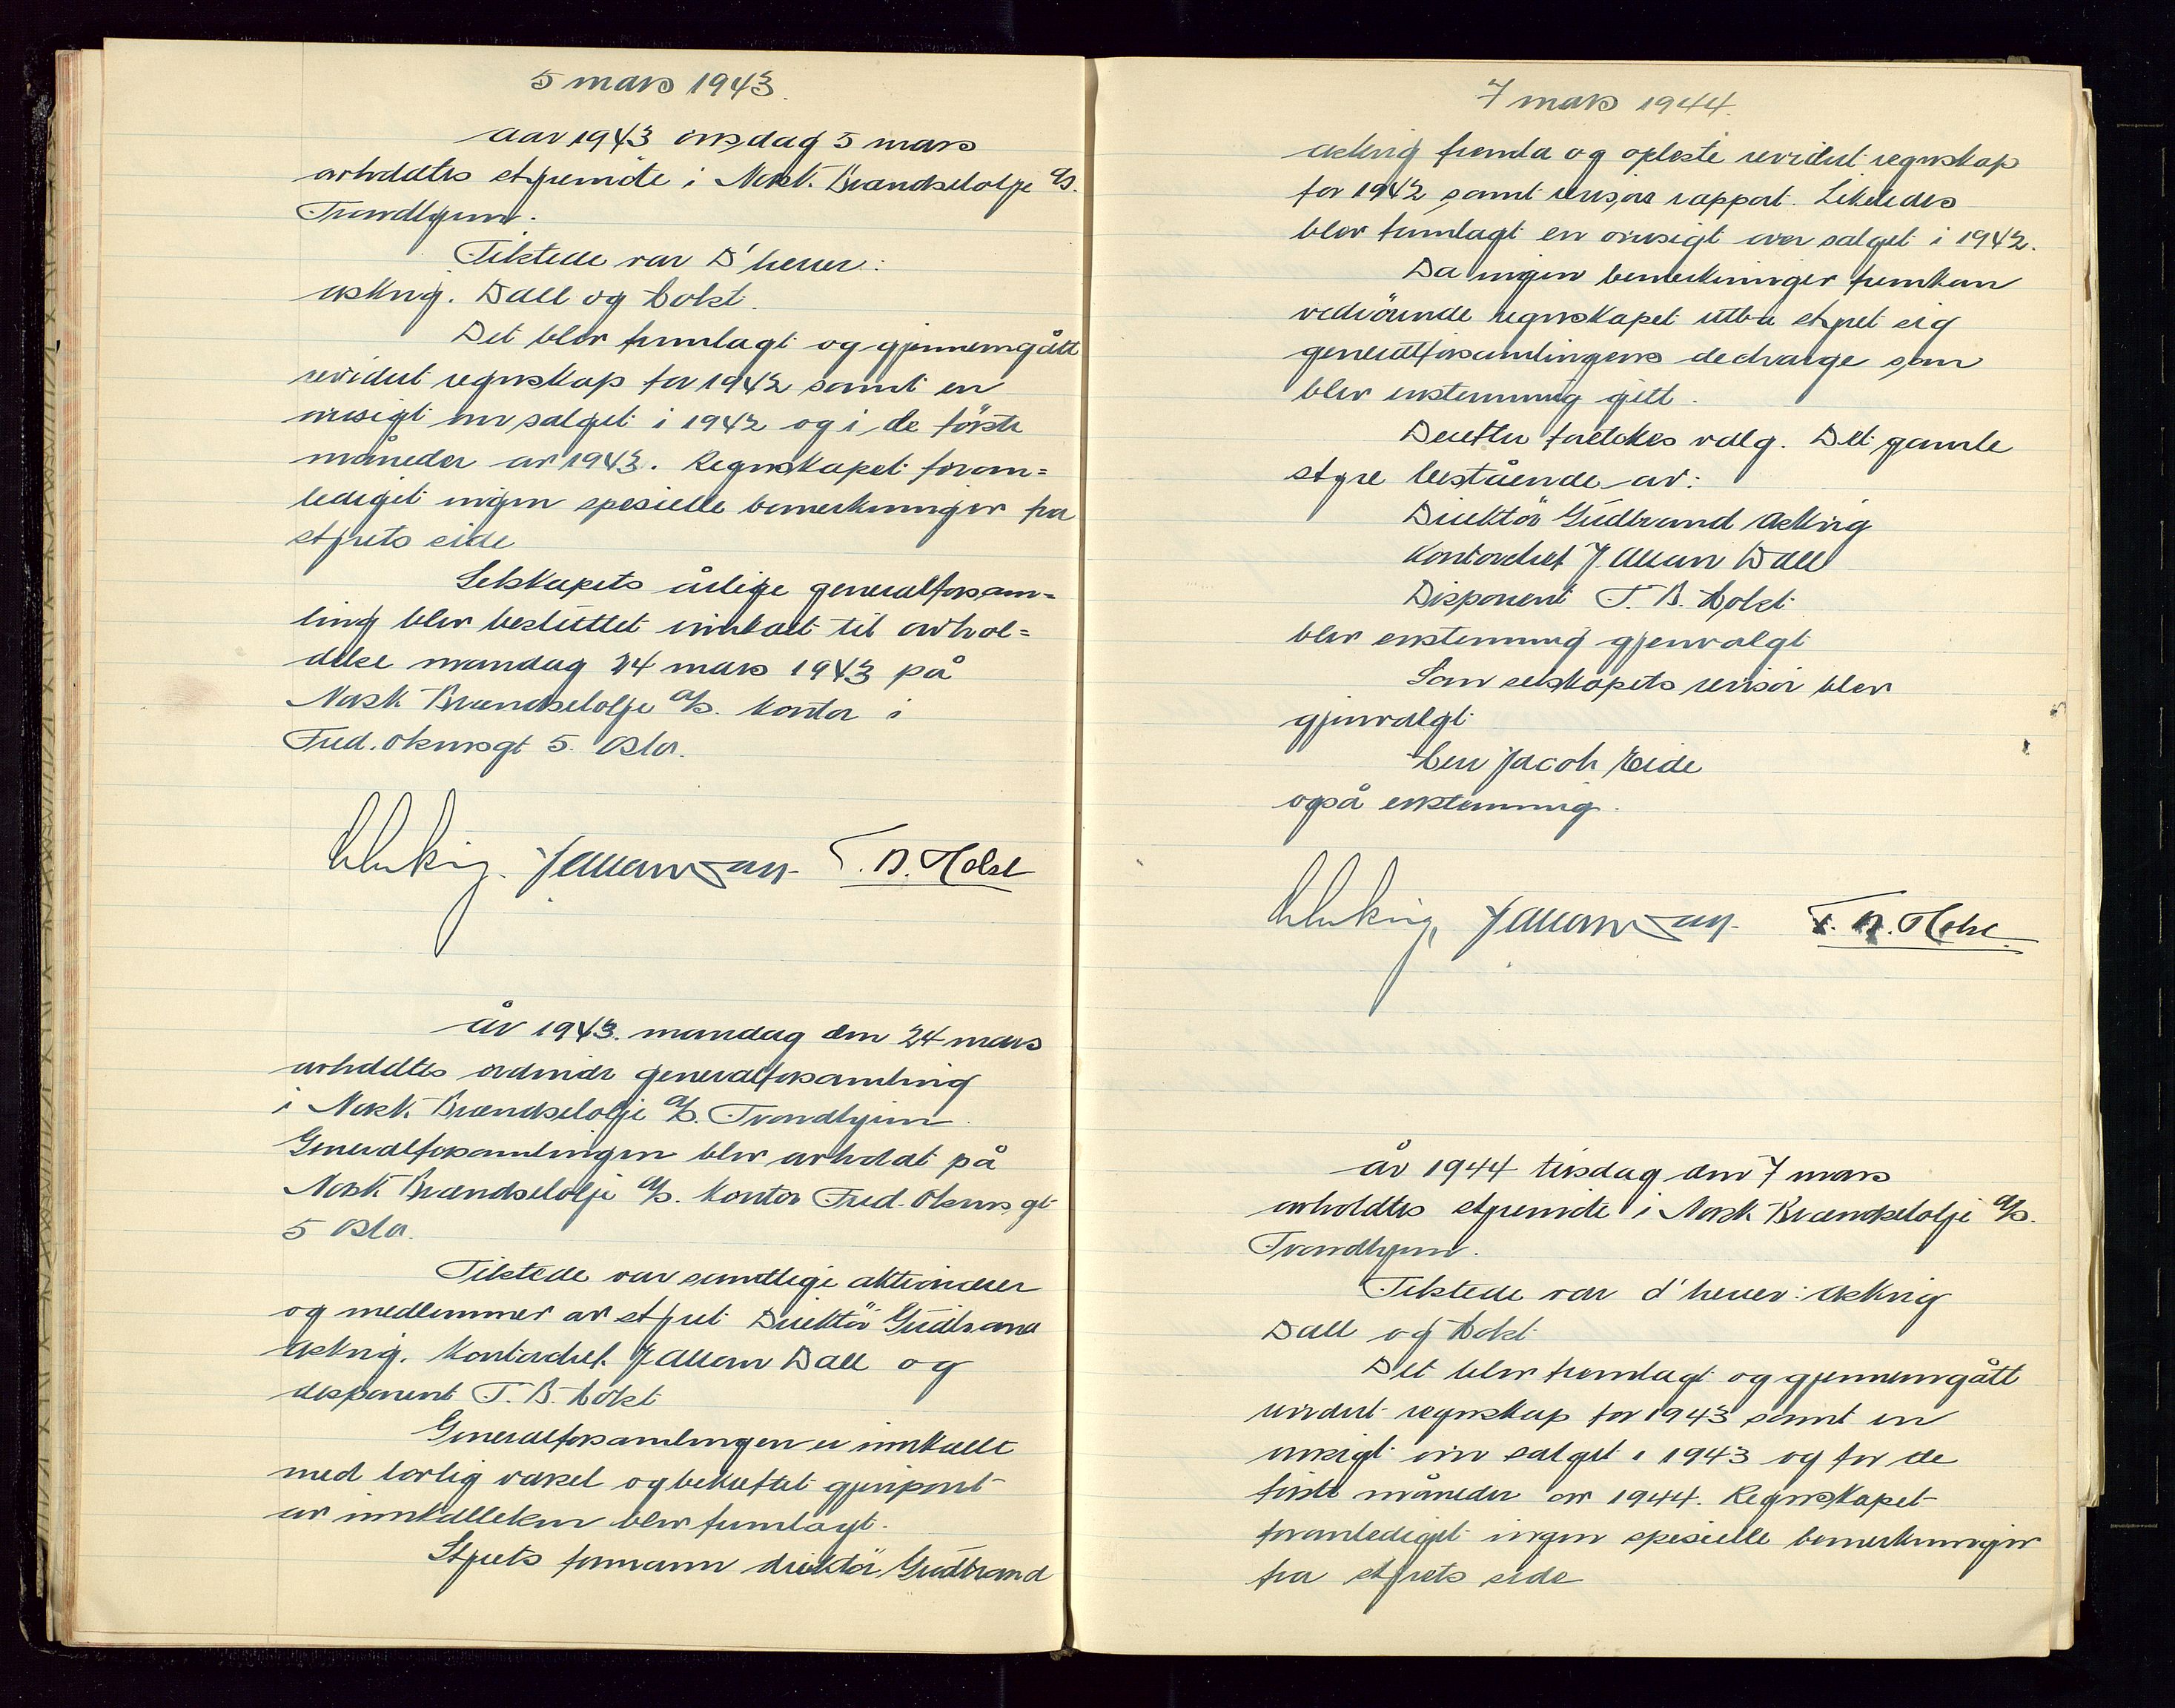 5 mars 1943.
Aar 1943 onsdag 5 mars
avholdtes styremöte i Norsk Brændselolje A/S.
Trondhjem.
Tilstede var D'herrer:
Askvig. Dall og Holst.
Det blev fremlagt og gjennemgått
revidert regnskap for 1942 samt en
oversigt over salget i 1942 og i de förste
måneder av 1943. Regnskapet foran=
lediget ingen spesielle bemerkninger fra
styrets side
Selskapets årlige generalforsam=
ling blev besluttet innkalt til avhol=
delse mandag 24 mars 1943 på
Norsk Brændselolje A/S. kontor i
Fred. Olsensgt 5. Oslo.
J Allan Dall T. B. Holst
År 1943. mandag den 24 mars
avholdtes ordinær generalforsamling
i Norsk Brændselolje A/S. Trondhjem.
Generalforsamlingen blev avholdt på
Norsk Brændselolje A/S. kontor Fred. Olsens gt
5 Oslo.
Tilstede var samtlige aktionærer
og medlemmer av styret Direktör Gudbrand
Askvig. Kontorchef. J Allan Dall og
disponent T. B. Holst
Generalforsamlingen er innkallt
med lovlig varsel og bekreftet gjenpart
av innkallelsen blev fremlagt.
Styrets formann direktör Gudbrand
7 mars 1944.
Askvig fremla og opleste revidert regnskap
for 1942 samt revisors rapport. Likeledes
blev fremlagt en oversigt over salget i 1942.
Da ingen bemerkninger fremkom
vedrörende regnskapet utba styret sig
generalforsamlingens decharge som
blev enstemmig gitt.
Derefter foretokes valg. Det gamle
styre bestående av:
Direktör Gudbrand Askvig
Kontorchef J. Allan Dall
Disponent T. B. Holst
blev enstemmig gjenvalgt
Som selskapets revisor blev
gjenvalgt
Herr Jacob Eide
også enstemmig.
J Allan Dall T. B. Holst
År 1944 tirsdag den 7 mars
avholdtes styremöte i Norsk Brændselolje A/S.
Trondhjem.
Tilstede var d'herrer: Askvig
Dall og Holst
Det blev fremlagt og gjennemgått
revidert regnskap for 1943 samt en
oversigt over salget i 1943 og for de
förste måneder av 1944. Regnskapet
foranlediget ingen spesielle bemerkninger
fra styrets side